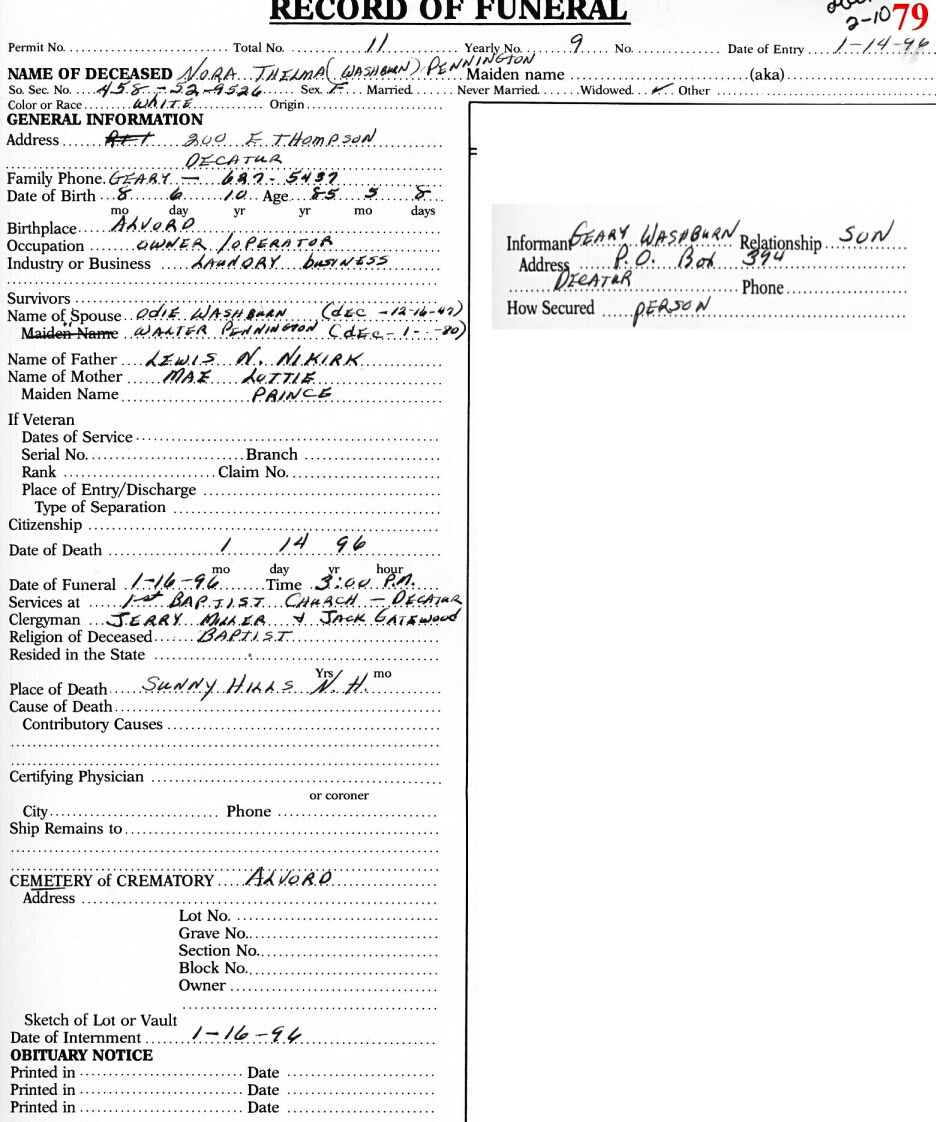 RECORD OF FUNERAL
2-10 79
Permit No. Total No. 11 Yearly No. 9 No. Date of Entry 1-14-96
NAME OF DECEASED NORA THELMA (WASHBURN) PENNINGTON Maiden name (aka)
So. Sec. No. 458-52-9526 Sex F Married Never Married Widowed ✓ Other
Color or Race WHITE Origin
GENERAL INFORMATION
Address RT 1 300 E THOMPSON
DECATUR
Family Phone GEARY — 627-5437
Date of Birth 8 6 10 Age 85 5 8
mo day yr yr mo days
Birthplace ALVORD
Occupation OWNER/OPERATOR
Industry or Business LAUNDRY BUSINESS
Survivors
Name of Spouse ODIE WASHBURN (dEC -12-16-47)
" Maiden Name WALTER PENNINGTON (dEC-1- -80)
Name of Father LEWIS N. NIKIRK
Name of Mother MAE LOTTIE
Maiden Name PRINCE
If Veteran
Dates of Service
Serial No. Branch
Rank Claim No.
Place of Entry/Discharge
Type of Separation
Citizenship
Date of Death 1 14 96
mo day yr hour
Date of Funeral 1-16-96 Time 3:00 P.M.
Services at 1st BAPTIST CHURCH — DECATUR
Clergyman JERRY MILLER & JACK GATEWOOD
Religion of Deceased BAPTIST
Resided in the State
Yrs mo
Place of Death SUNNY HILLS N.H.
Cause of Death
Contributory Causes
Certifying Physician
or coroner
City Phone
Ship Remains to
CEMETERY of CREMATORY ALVORD
Address
Lot No.
Grave No.
Section No.
Block No.
Owner
Sketch of Lot or Vault
Date of Internment 1-16-96
OBITUARY NOTICE
Printed in Date
Printed in Date
Printed in Date
Informant GEARY WASHBURN Relationship SON
Address P.O. Box 394
DECATUR Phone
How Secured PERSON